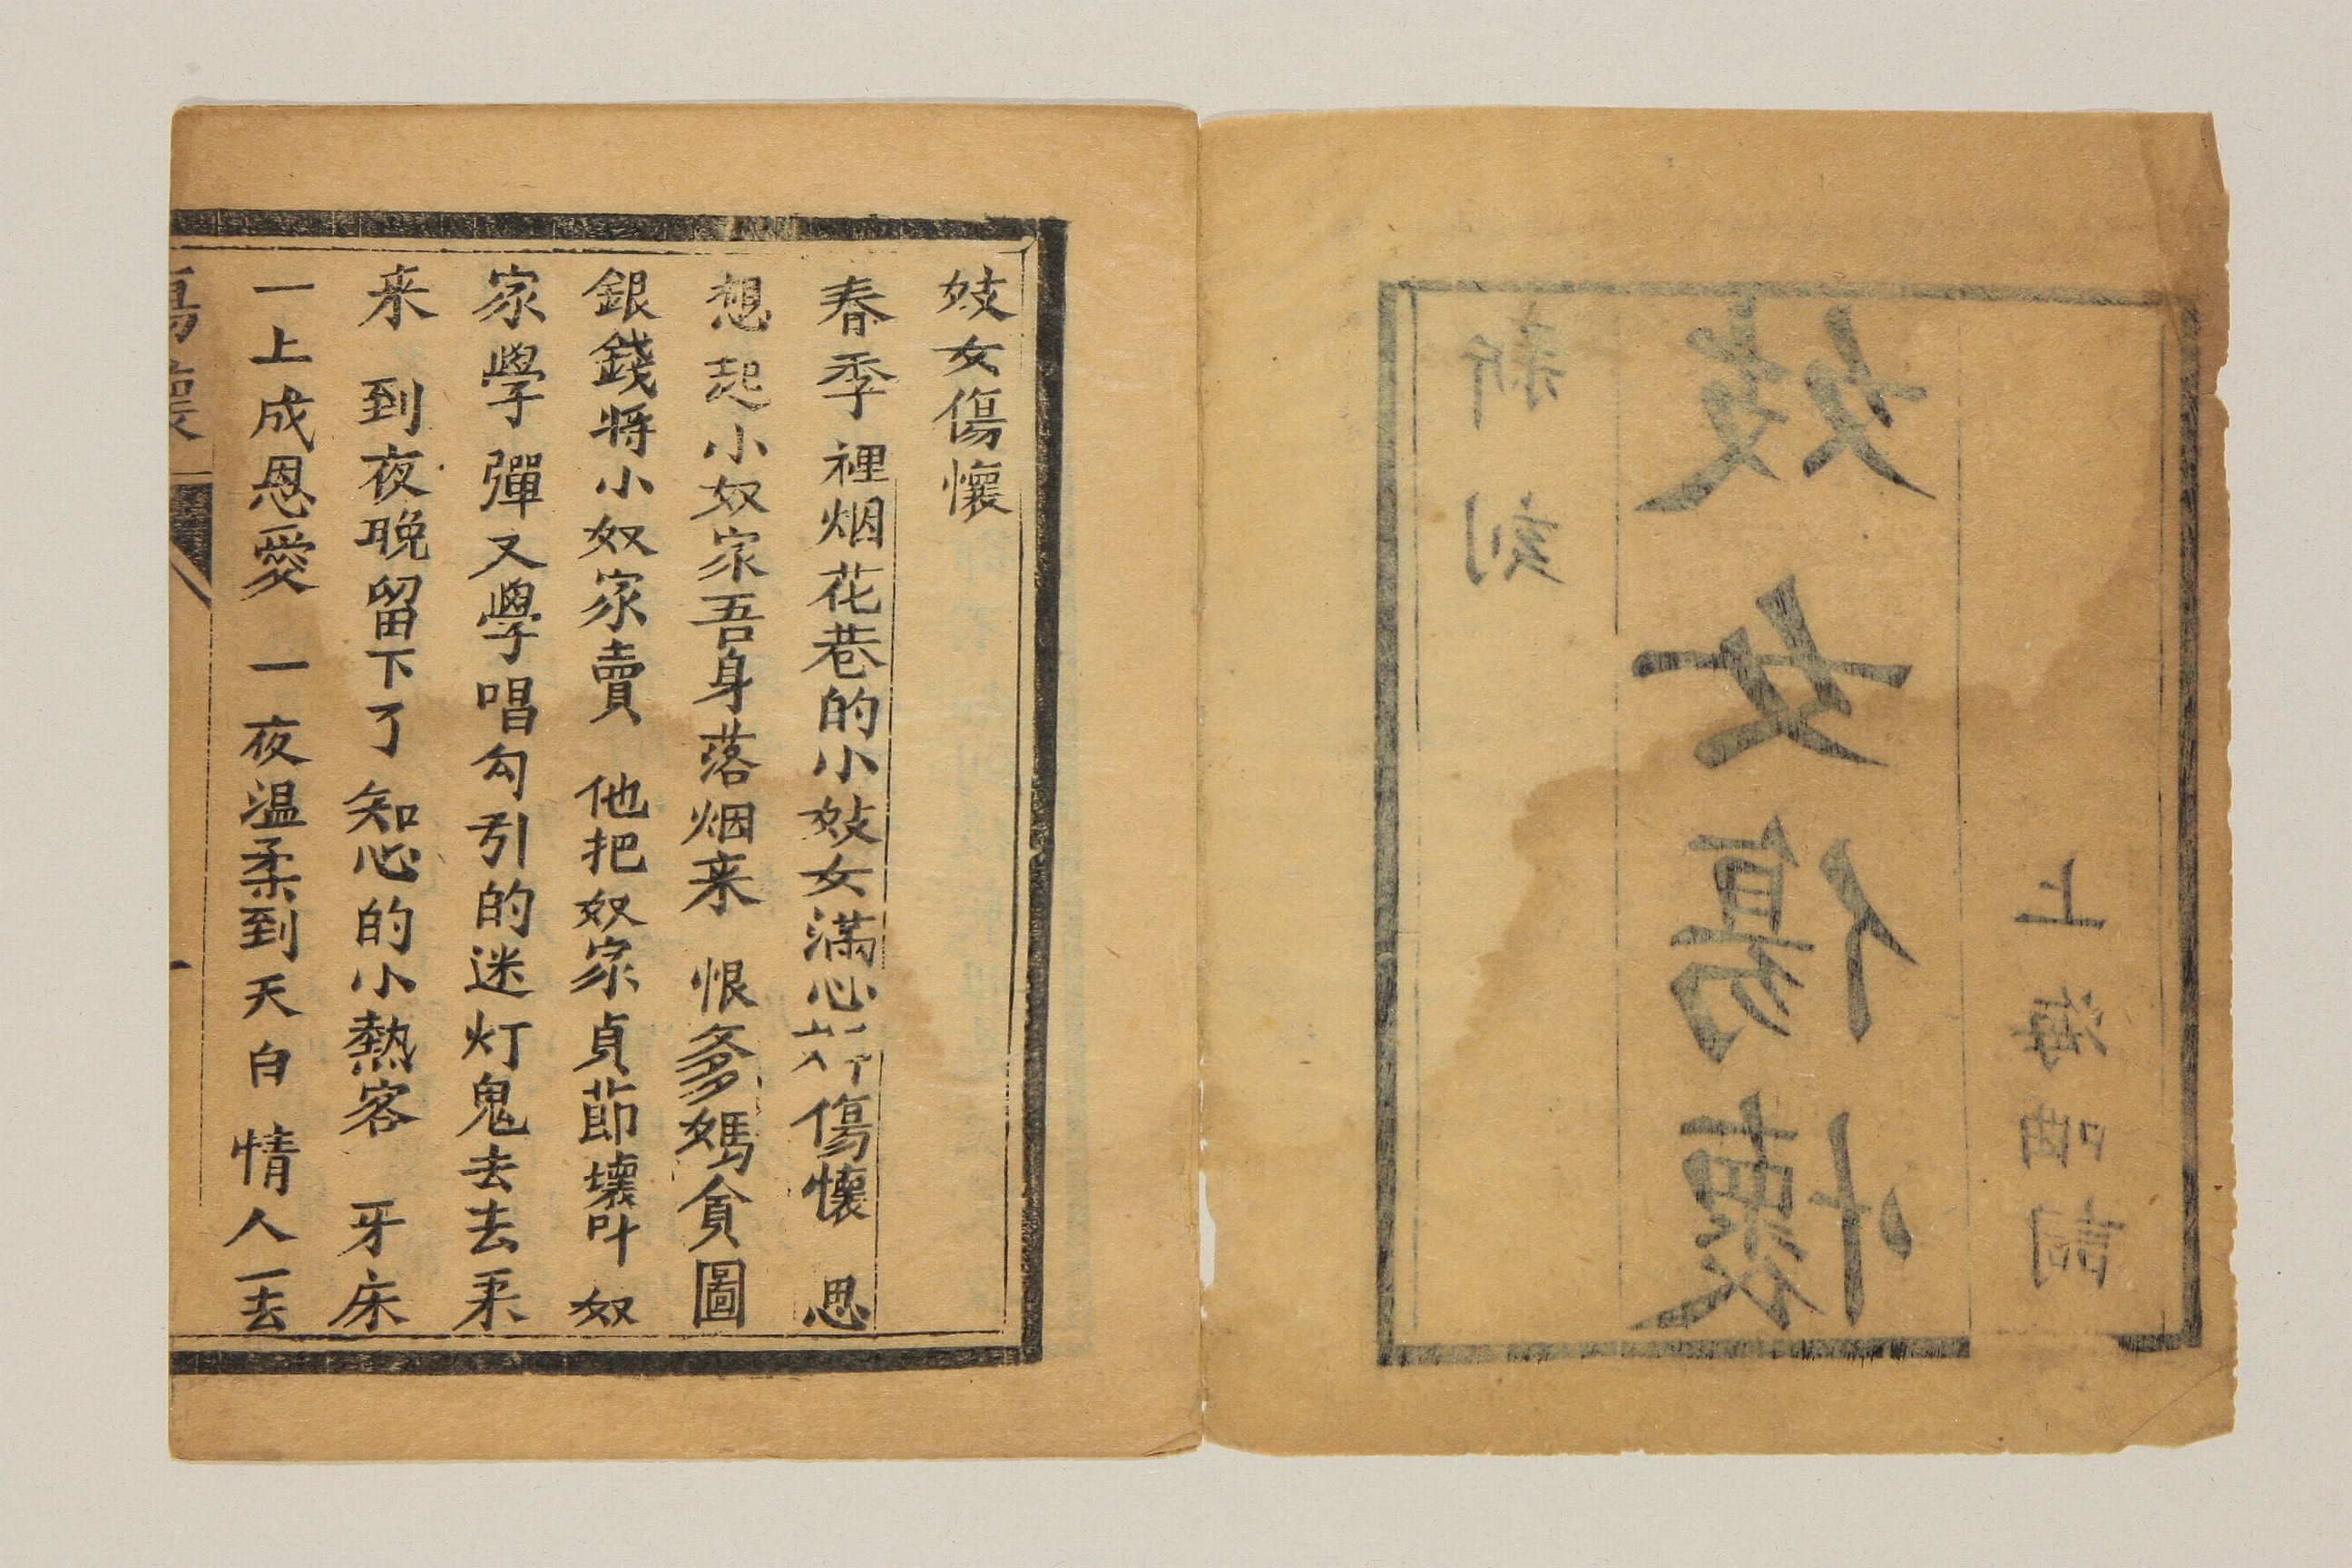 新刻
妓女傷懷
上海詞
妓女傷懷
春季裡烟花巷的小妓女滿心傷懷 思
想起小奴家吾身落烟来 恨爹媽貪圖
銀錢将小奴家賣 他把奴家貞節壞叫奴
家學彈又學唱勾引的迷灯鬼去去来
来 到夜晚留下了知心的小熱客 牙床
一上成恩愛 一夜温柔到天白 情人一去